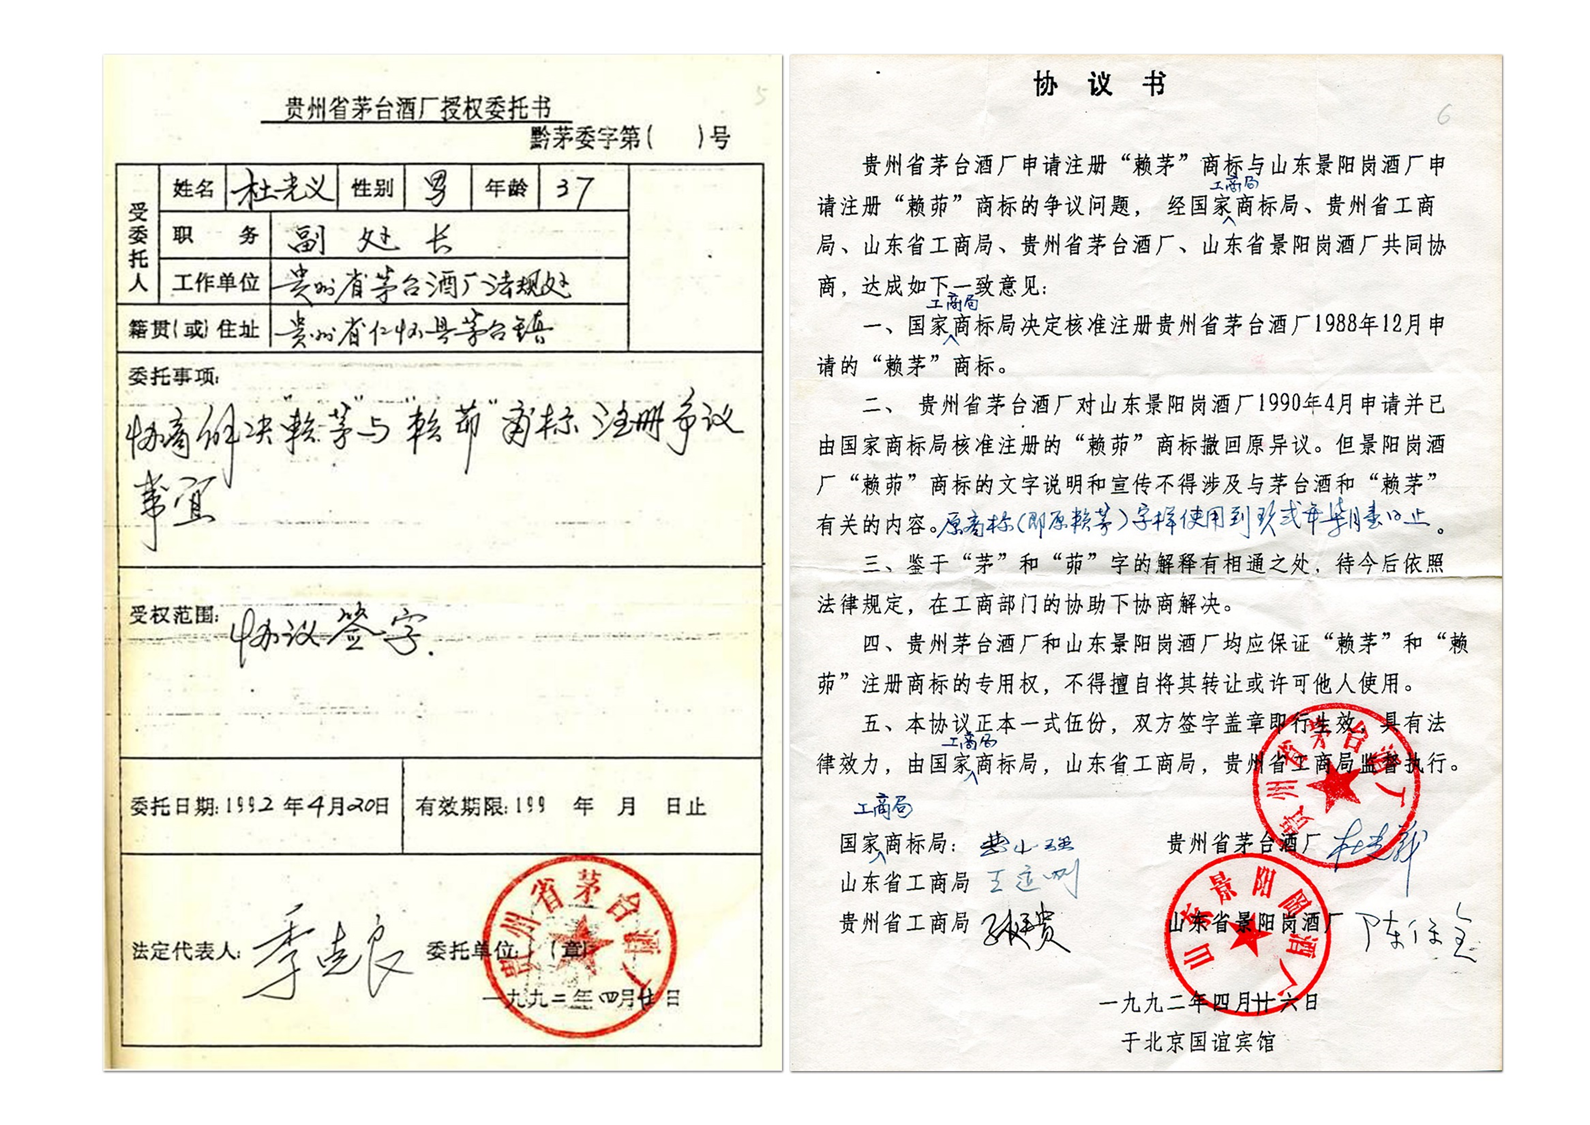 贵州省茅台酒厂授权委托书
5
黔茅委字第( )号
受委托人
姓名 杜光义 性别 男 年龄 37
职 务 副处长
工作单位 贵州省茅台酒厂法规处
籍贯(或)住址 贵州省仁怀县茅台镇
委托事项:
协商解决“赖茅”与“赖茆”商标注册争议
事宜
受权范围: 协议签字.
委托日期: 1992年4月20日 有效期限: 199 年 月 日止
法定代表人: 季克良 委托单位 (章)
贵州省茅台酒厂
一九九二年四月廿日
协 议 书
6
贵州省茅台酒厂申请注册“赖茅”商标与山东景阳岗酒厂申
工商局
请注册“赖茆”商标的争议问题, 经国家商标局、贵州省工商
局、山东省工商局、贵州省茅台酒厂、山东省景阳岗酒厂共同协
商, 达成如下一致意见:
工商局
一、国家商标局决定核准注册贵州省茅台酒厂1988年12月申
请的“赖茅”商标。
二、 贵州省茅台酒厂对山东景阳岗酒厂1990年4月申请并已
由国家商标局核准注册的“赖茆”商标撤回原异议。但景阳岗酒
厂“赖茆”商标的文字说明和宣传不得涉及与茅台酒和“赖茅”
有关的内容。原商标(即原赖茅)字样使用到玖贰年柒月壹日止。
三、鉴于“茅”和“茆”字的解释有相通之处, 待今后依照
法律规定, 在工商部门的协助下协商解决。
四、贵州茅台酒厂和山东景阳岗酒厂均应保证“赖茅”和“赖
茆”注册商标的专用权, 不得擅自将其转让或许可他人使用。
五、本协议正本一式伍份, 双方签字盖章即行生效, 具有法
工商局
律效力, 由国家商标局, 山东省工商局, 贵州省工商局监督执行。
贵州省茅台酒厂
工商局
国家商标局: 贵州省茅台酒厂 杜光义
山东省工商局
贵州省工商局 山东省景阳岗酒厂
山东景阳岗酒厂
一九九二年四月廿六日
于北京国谊宾馆